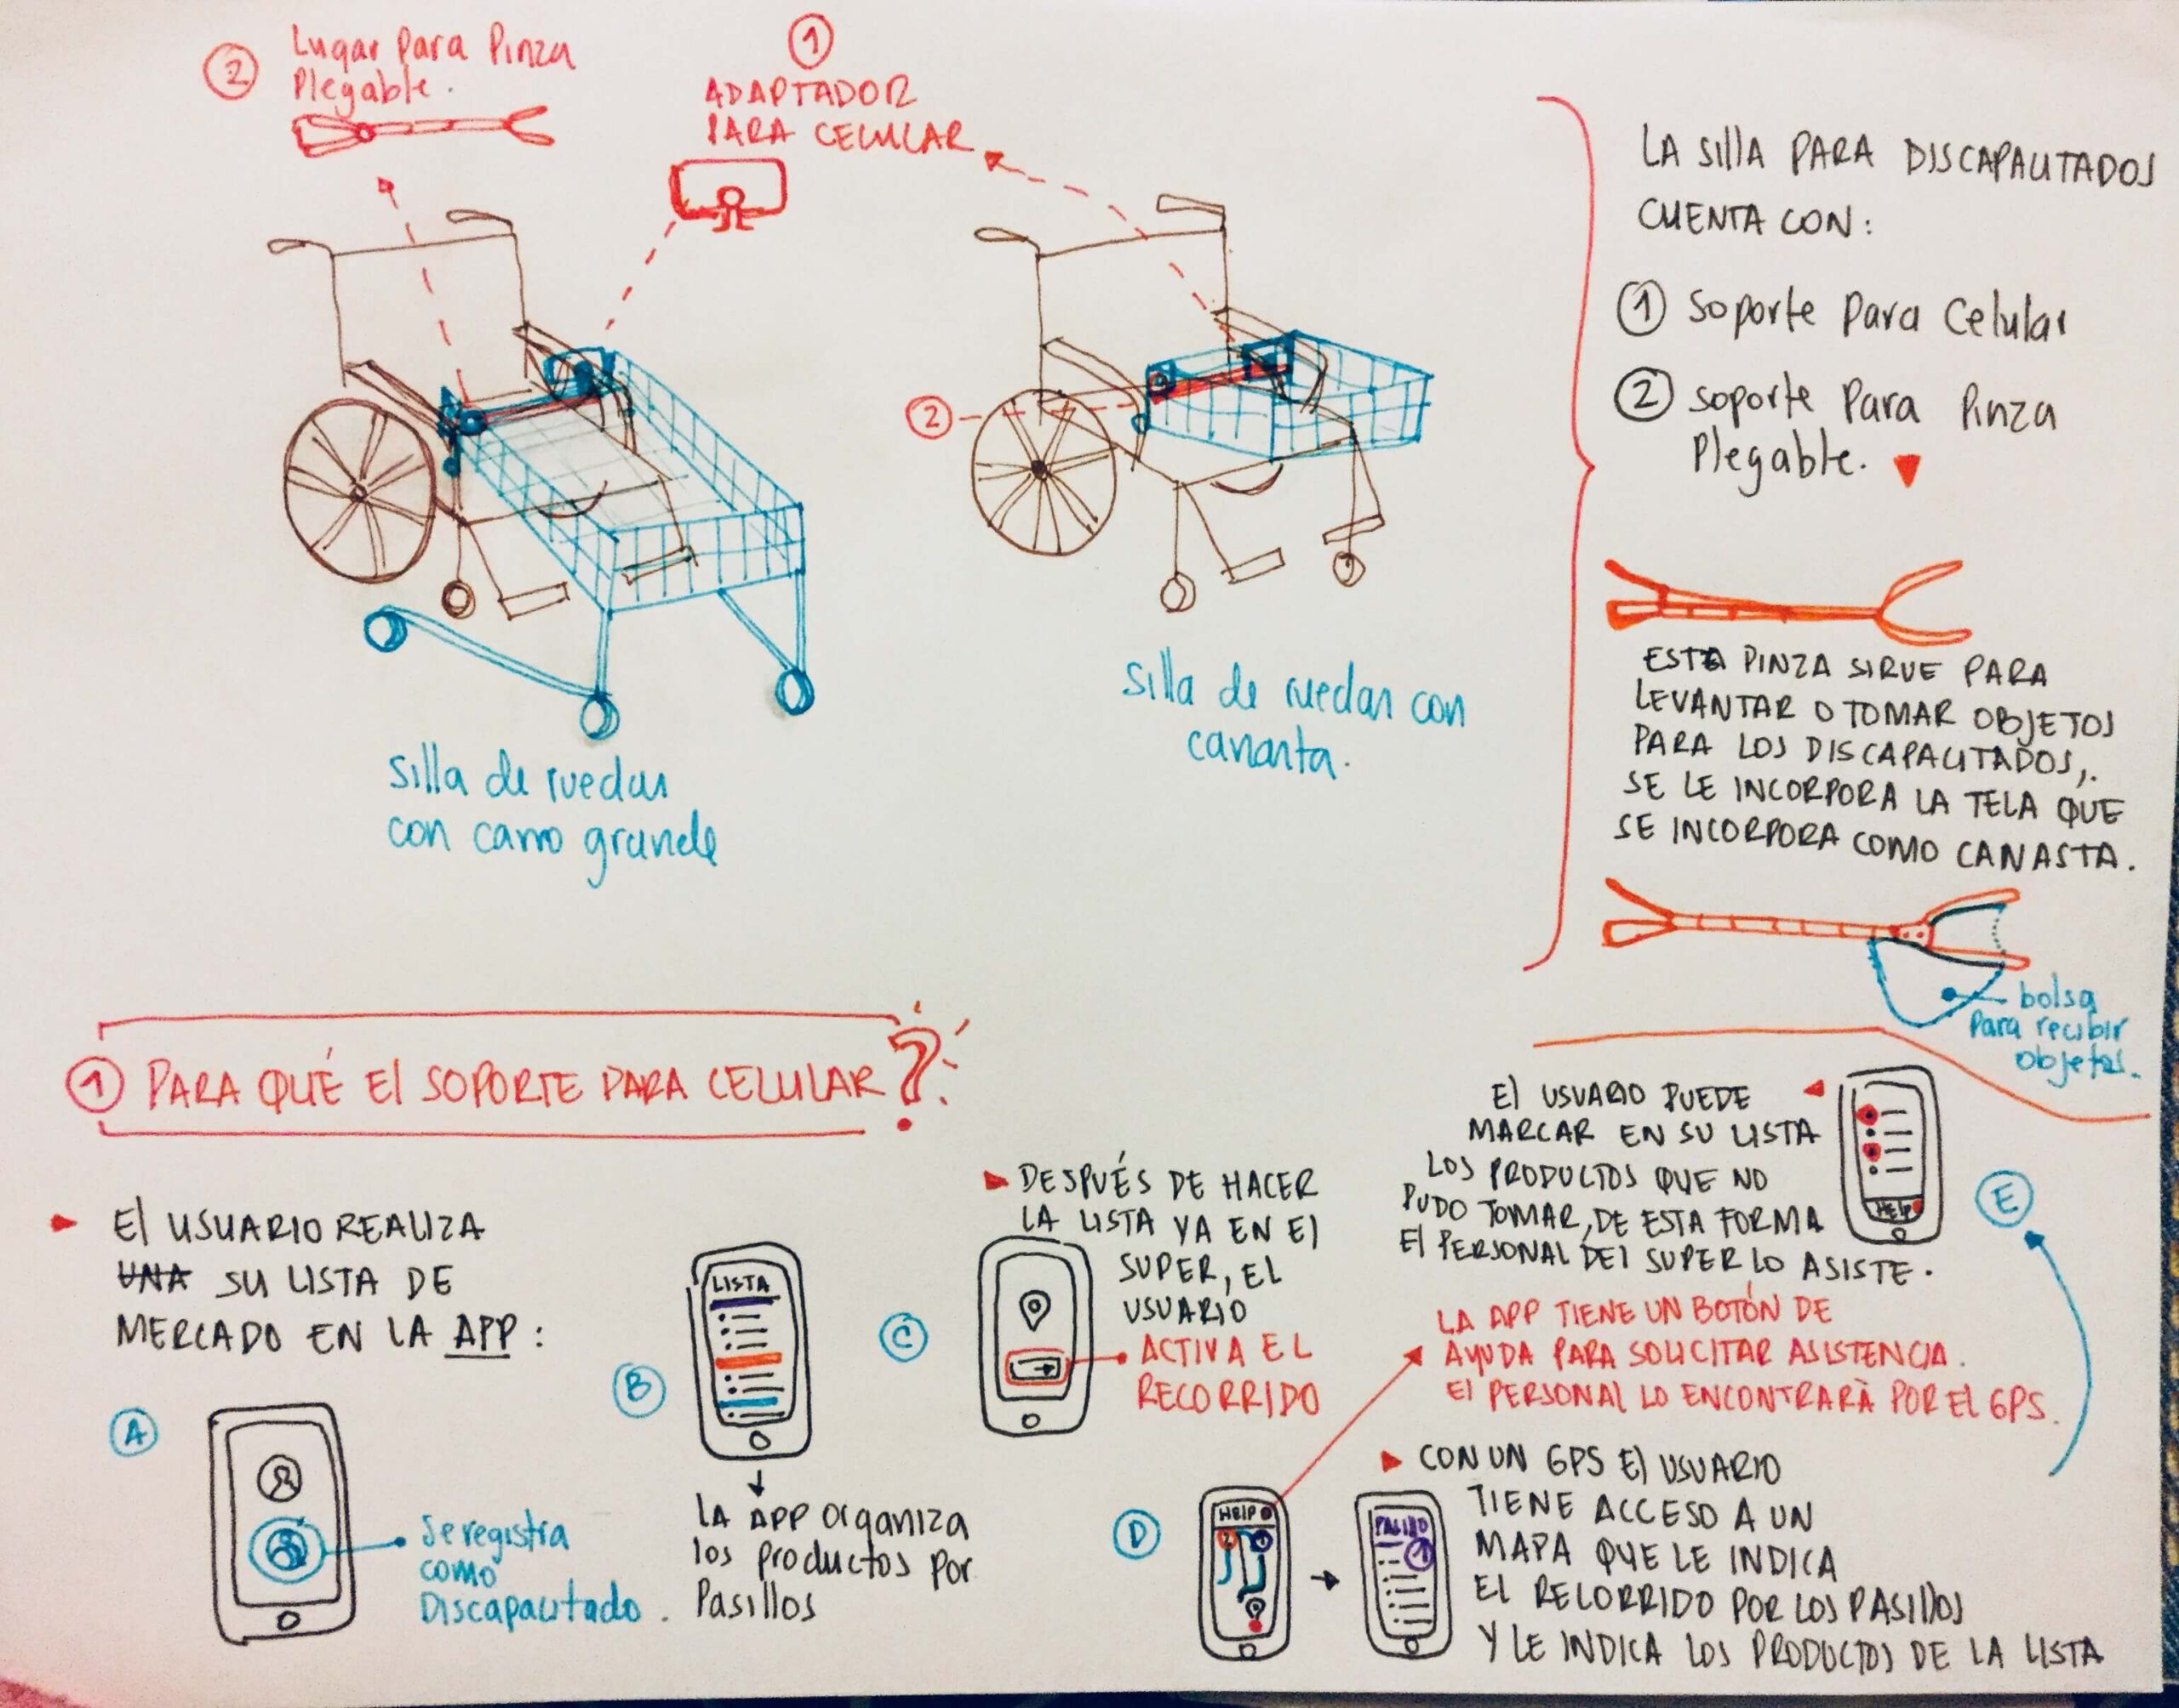 ② Lugar Para Pinza
Plegable.
①
ADAPTADOR
PARA CELULAR
②
Silla de ruedas
con carro grande
Silla de ruedas con
canasta.
LA SIllA PARA DISCAPACITADOS
CUENTA CON:
① Soporte Para Celular
② Soporte Para Pinza
Plegable.
ESTA PINZA SIRVE PARA
LEVANTAR O TOMAR OBJETOS
PARA LOS DISCAPACITADOS,.
SE LE INCORPORA LA TELA QUE
SE INCORPORA COMO CANASTA.
bolsa
Para recibir
objetos.
① PARA QUÉ El SOPORTE PARA CELULAR?
El USUARIO REALIZA
UNA SU LISTA DE
MERCADO EN LA APP:
A
Se registra
como
Discapacitado.
B
LISTA
LA APP Organiza
los productos por
Pasillos
C
DESPUÉS DE HACER
LA LISTA YA EN El
SUPER, EL
USUARIO
ACTIVA EL
RECORRIDO
D
HElP
PASIllO
1
CON UN GPS El USUARIO
TIENE ACCESO A UN
MAPA QUE LE INDICA
EL RECORRIDO POR LOS PASIllOS
Y LE INDICA LOS PRODUCTOS DE LA LISTA
LA APP TIENE UN BOTÓN DE
AYUDA PARA SOLICITAR ASISTENCIA.
El PERSONAL LO ENCONTRARÀ POR EL GPS.
E
El USUARIO PUEDE
MARCAR EN SU LISTA
LOS PRODUCTOS QUE NO
PUDO TOMAR, DE ESTA FORMA
El PERSONAL DEl SUPER LO ASISTE.
HElP